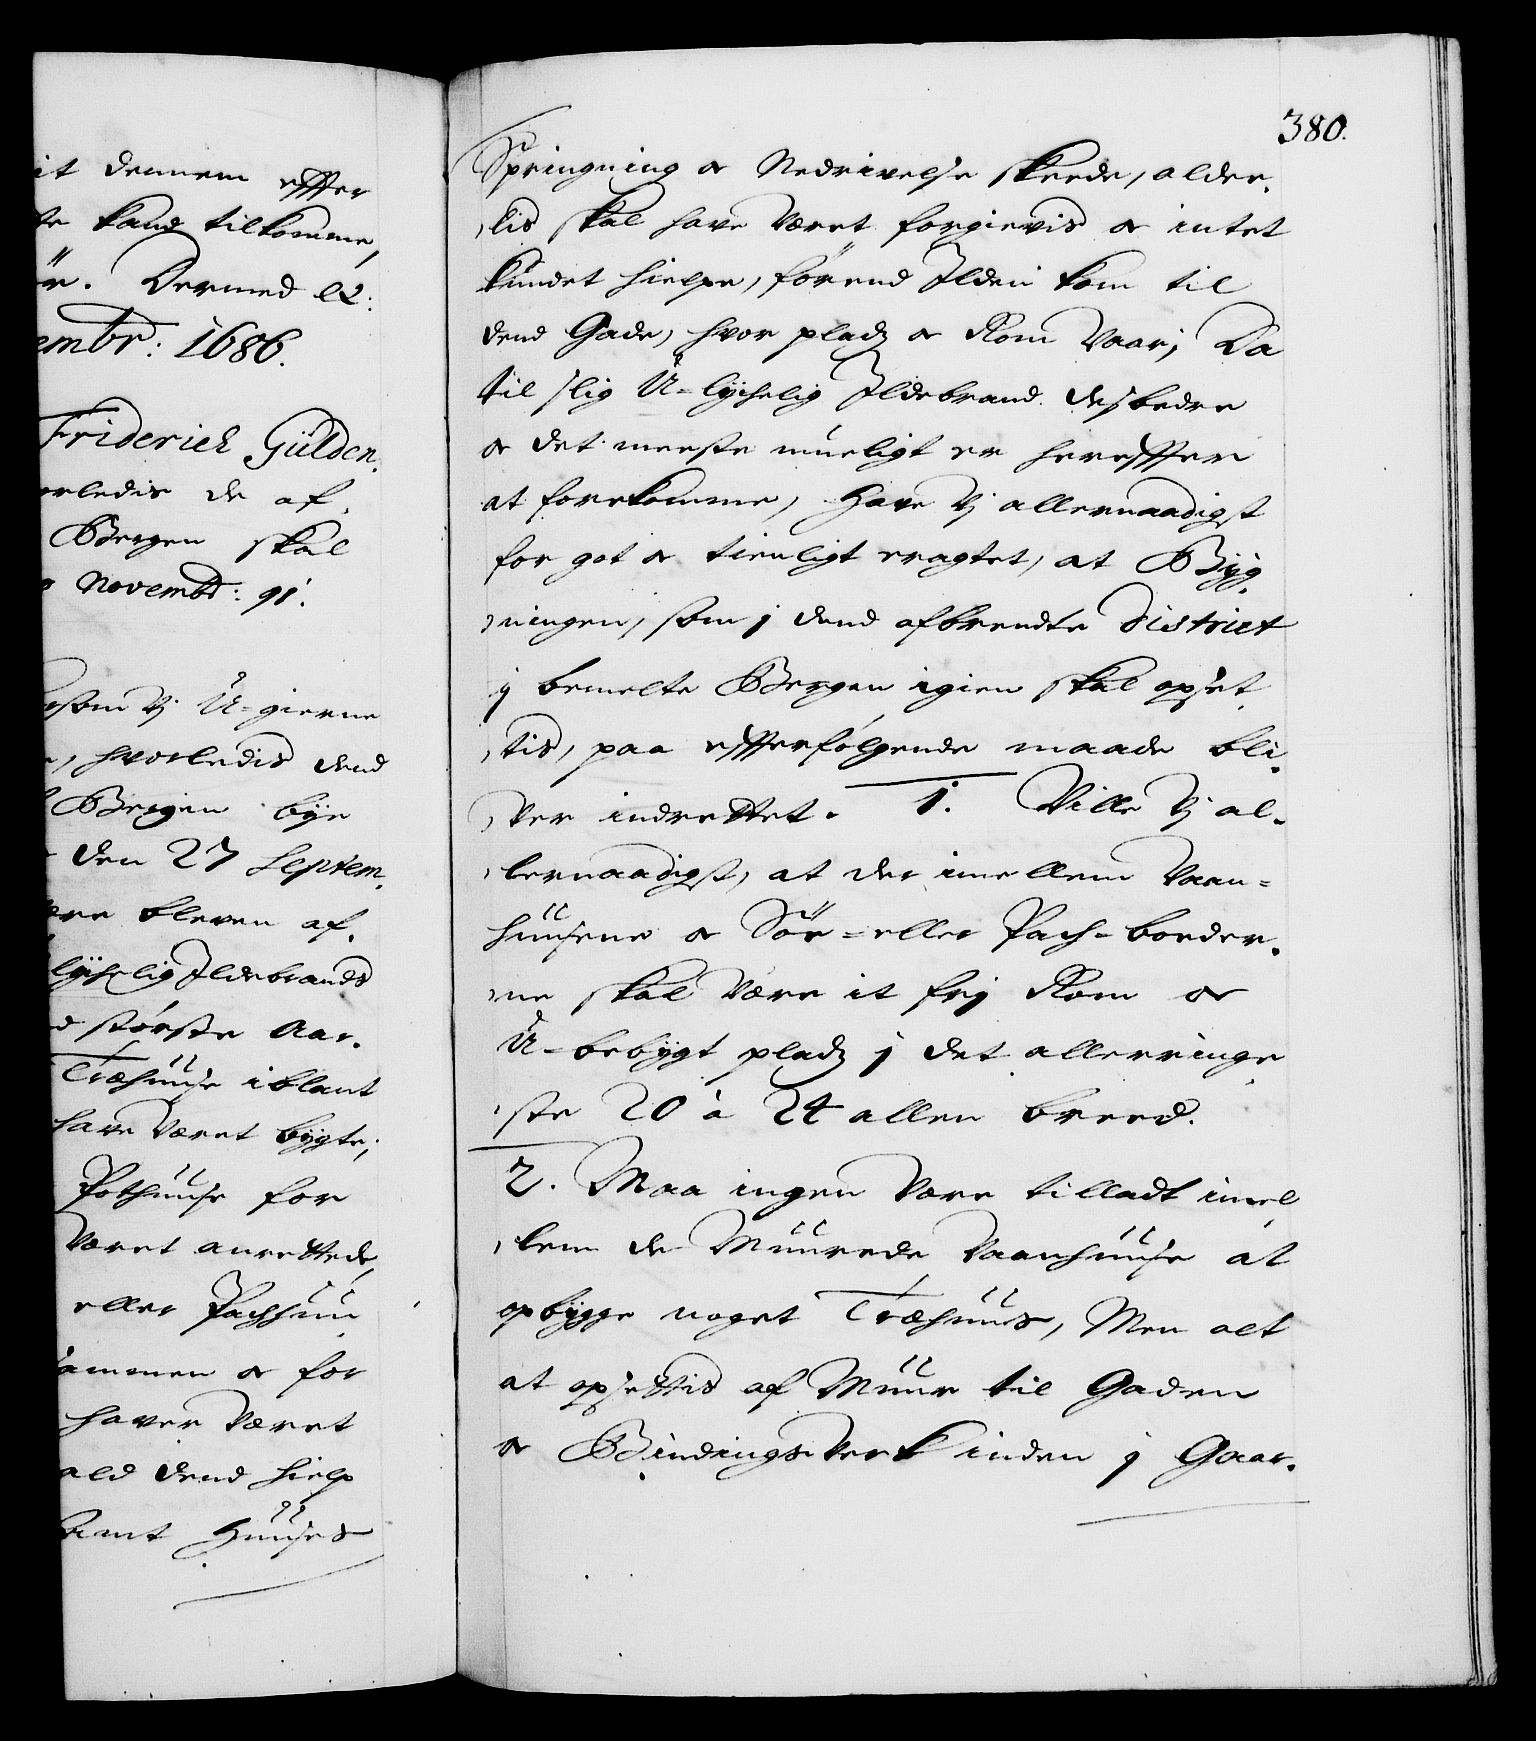 it dennem effter
te kand tilkomme,
ör. Dermed etc:
embr: 1686.
Friderich Gülden,
orledis de af,
Bergen skal
Novembr: 91.
som Vj U-gierne
, hvorledis dend
Bergen bye
den 27 Septem,
ære bleven af,
lychelig Ildebrands
d största Aar,
Træhuuse iblant
have Været bygte;
Pothuuse for
Været anrettede,
eller Pachhuu
sammen oc for
haver Været
ald dend hielp
samt Huuses
380.
Springning oc Nedrivelse skeede, alder,
,lis skal have Været forgievis oc intet
kundet hielpe, förend Ilden kom til
dend Gade, hvor pladz oc Rom Vaar; Da
til slig U-lychelig Ildebrand desbedre
oc det meeste mueligt er hereffter
at forekomme, Have Vj allernaadigst
for got oc tienligt eragtet, at Byg,
,ningen, som j dend afbrendte District
j bemelte Bergen igien skal opset,
,tis, paa effterfölgende maade bli,
,ver indrettet. 1. Ville Vj al,
,lernaadigst, at der imellem Vaan=
huusene oc Söe-eller Pach-boeder,
,ne skal Være it frj Rom oc
U-bebygt pladz j det allerringe,
,ste 20 à 24 allen breed.
2. Maa ingen Være tilladt imel
,lem de Muurede Vaanhuuse at
opbygge noget Træhuus, Men alt
at opsettis af Muur til Gaden
oc Bindingsverk inden j Gaar,